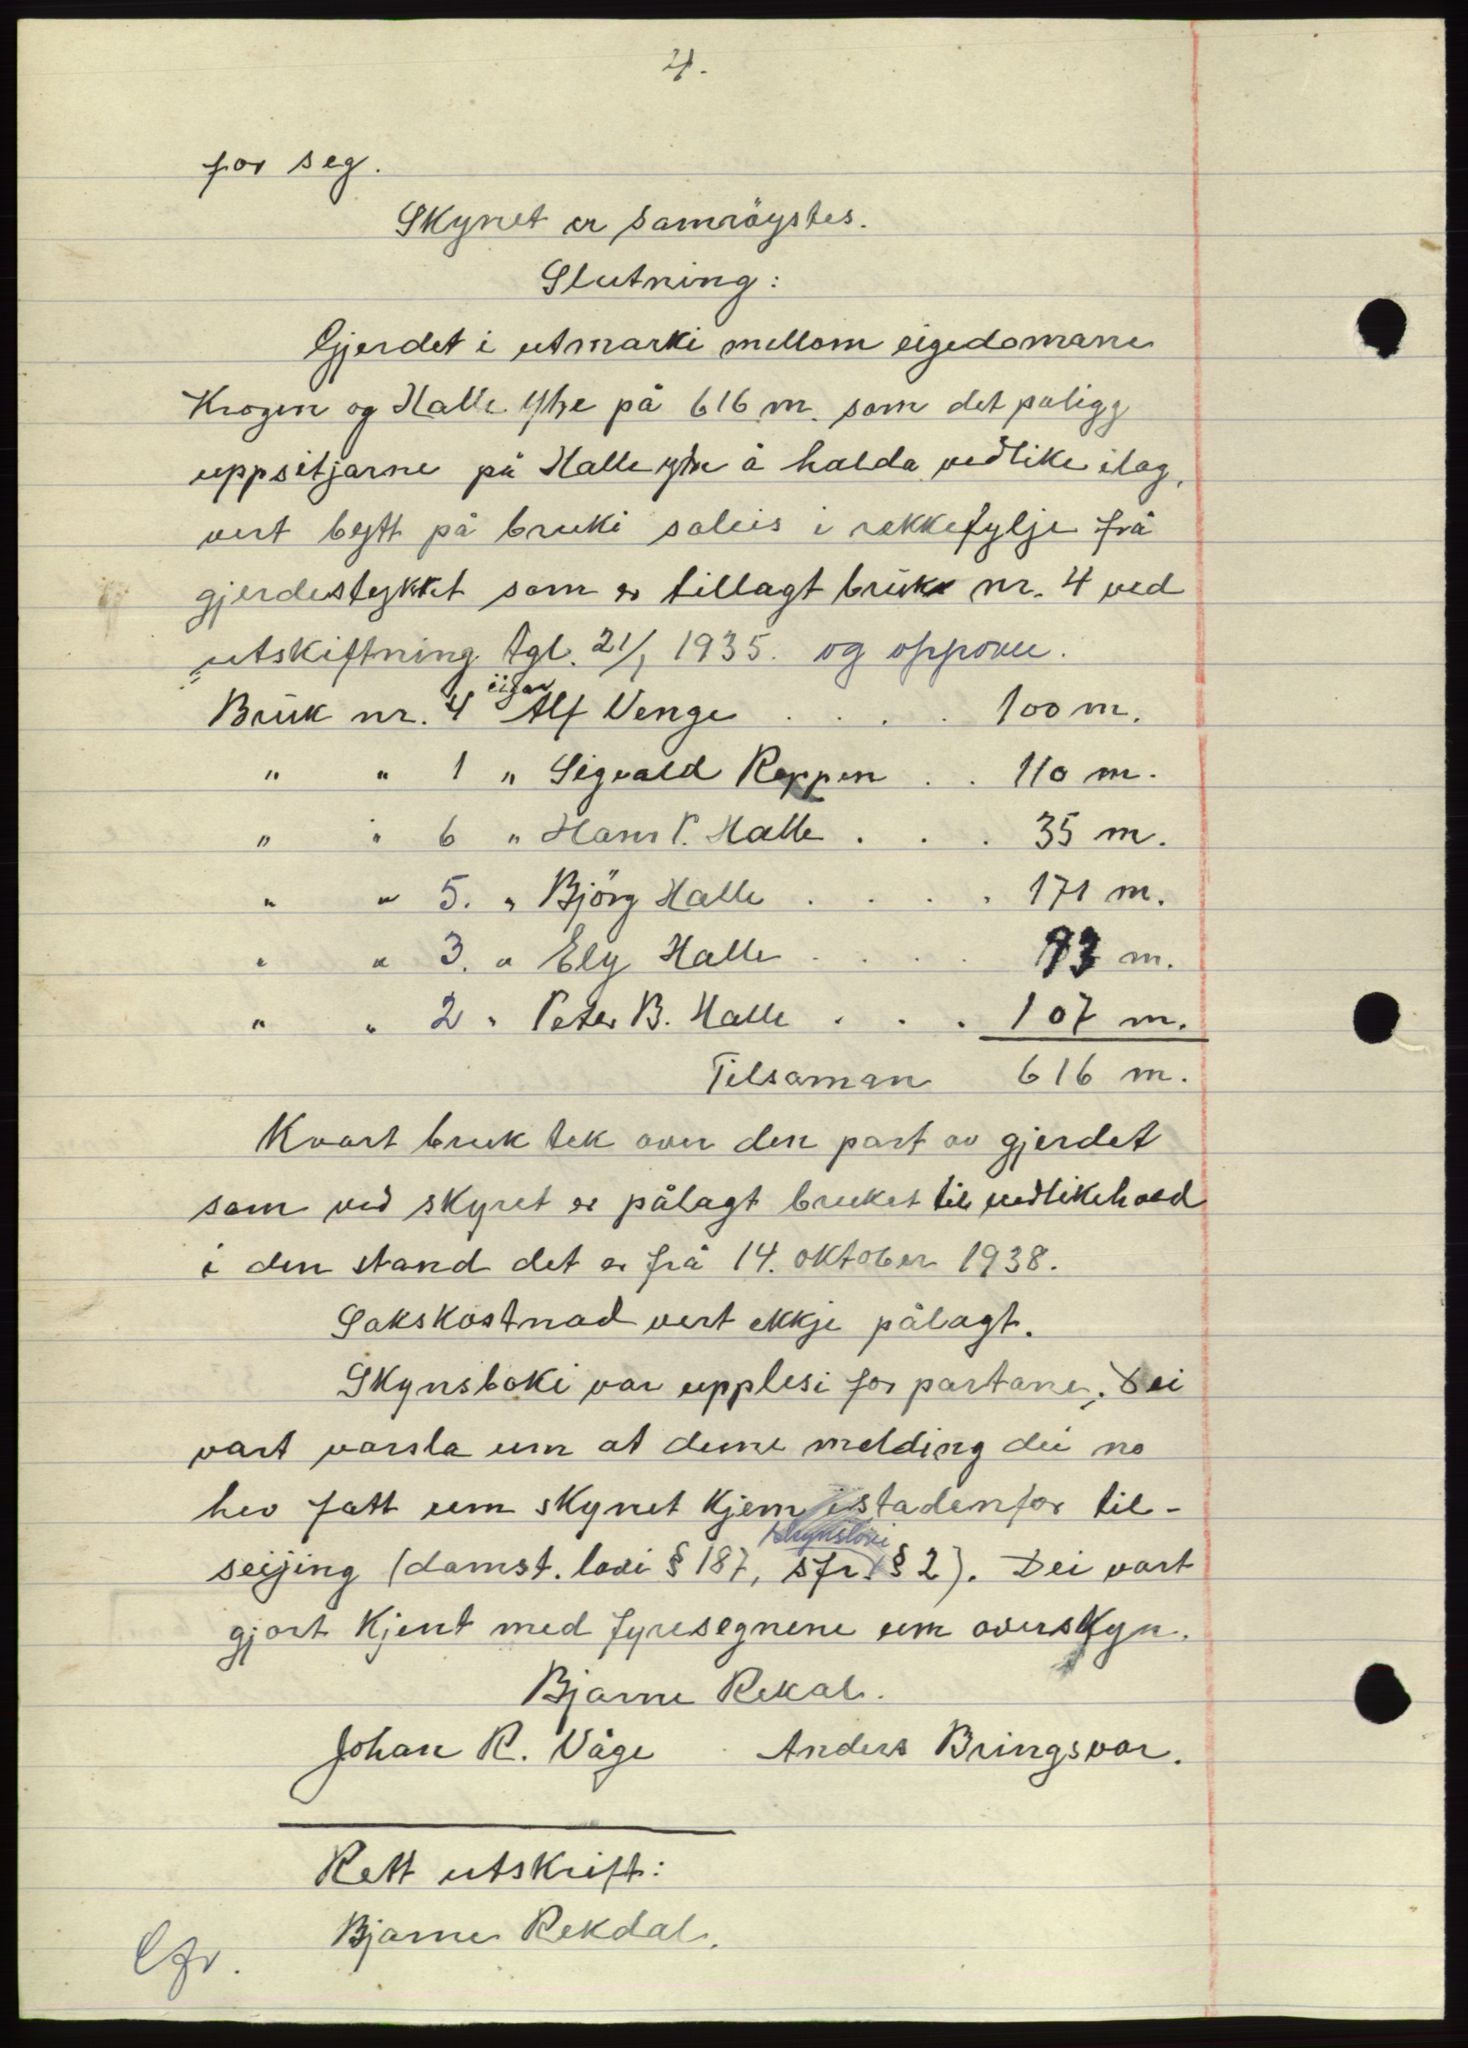 4.
for seg.
Skynet er samröystes.
Slutning:
Gjerdet i utmarki mellom eigedomane
Krogen og Halle ytre på 616 m. som det påligg
uppsitjarne på Halle ytre å halda vedlike ilag,
vert bytt på bruki soleis i rekkefylje frå
gjerdestykket som er tillagt bruk nr. 4 ved
utskiftning tgl. 21/1 1935. og oppover.
Bruk nr. 4 eigar Alf Venge . . . . 100 m.
" " 1 " Sigvald Reppen . . 110 m.
" " 6 " Hans P. Halle . . . 35 m.
" " 5. " Björg Halle . . . . 171 m.
" " 3. " Ely Halle . . . . 93 m.
" " 2 " Peter B. Halle . . . 107 m.
Tilsaman 616 m.
Kvart bruk tek over den part av gjerdet
som ved skynet er pålagt bruket til vedlikehald
i den stand det er frå 14. oktober 1938.
Sakskostnad vert ekkje pålagt.
Skynsboki var upplesi for partane. Dei
vart varsla um at denne melding dei no
hev fått um skynet kjem istadenfor til-
seijing (domst. lovi § 187, sfr. skynslovi § 2). Dei vart
gjort kjent med fyresegnene um overskyn.
Bjarne Rekdal.
Johan R. Våge Anders Bringsvor.
Rett utskrift:
Bjarne Rekdal.